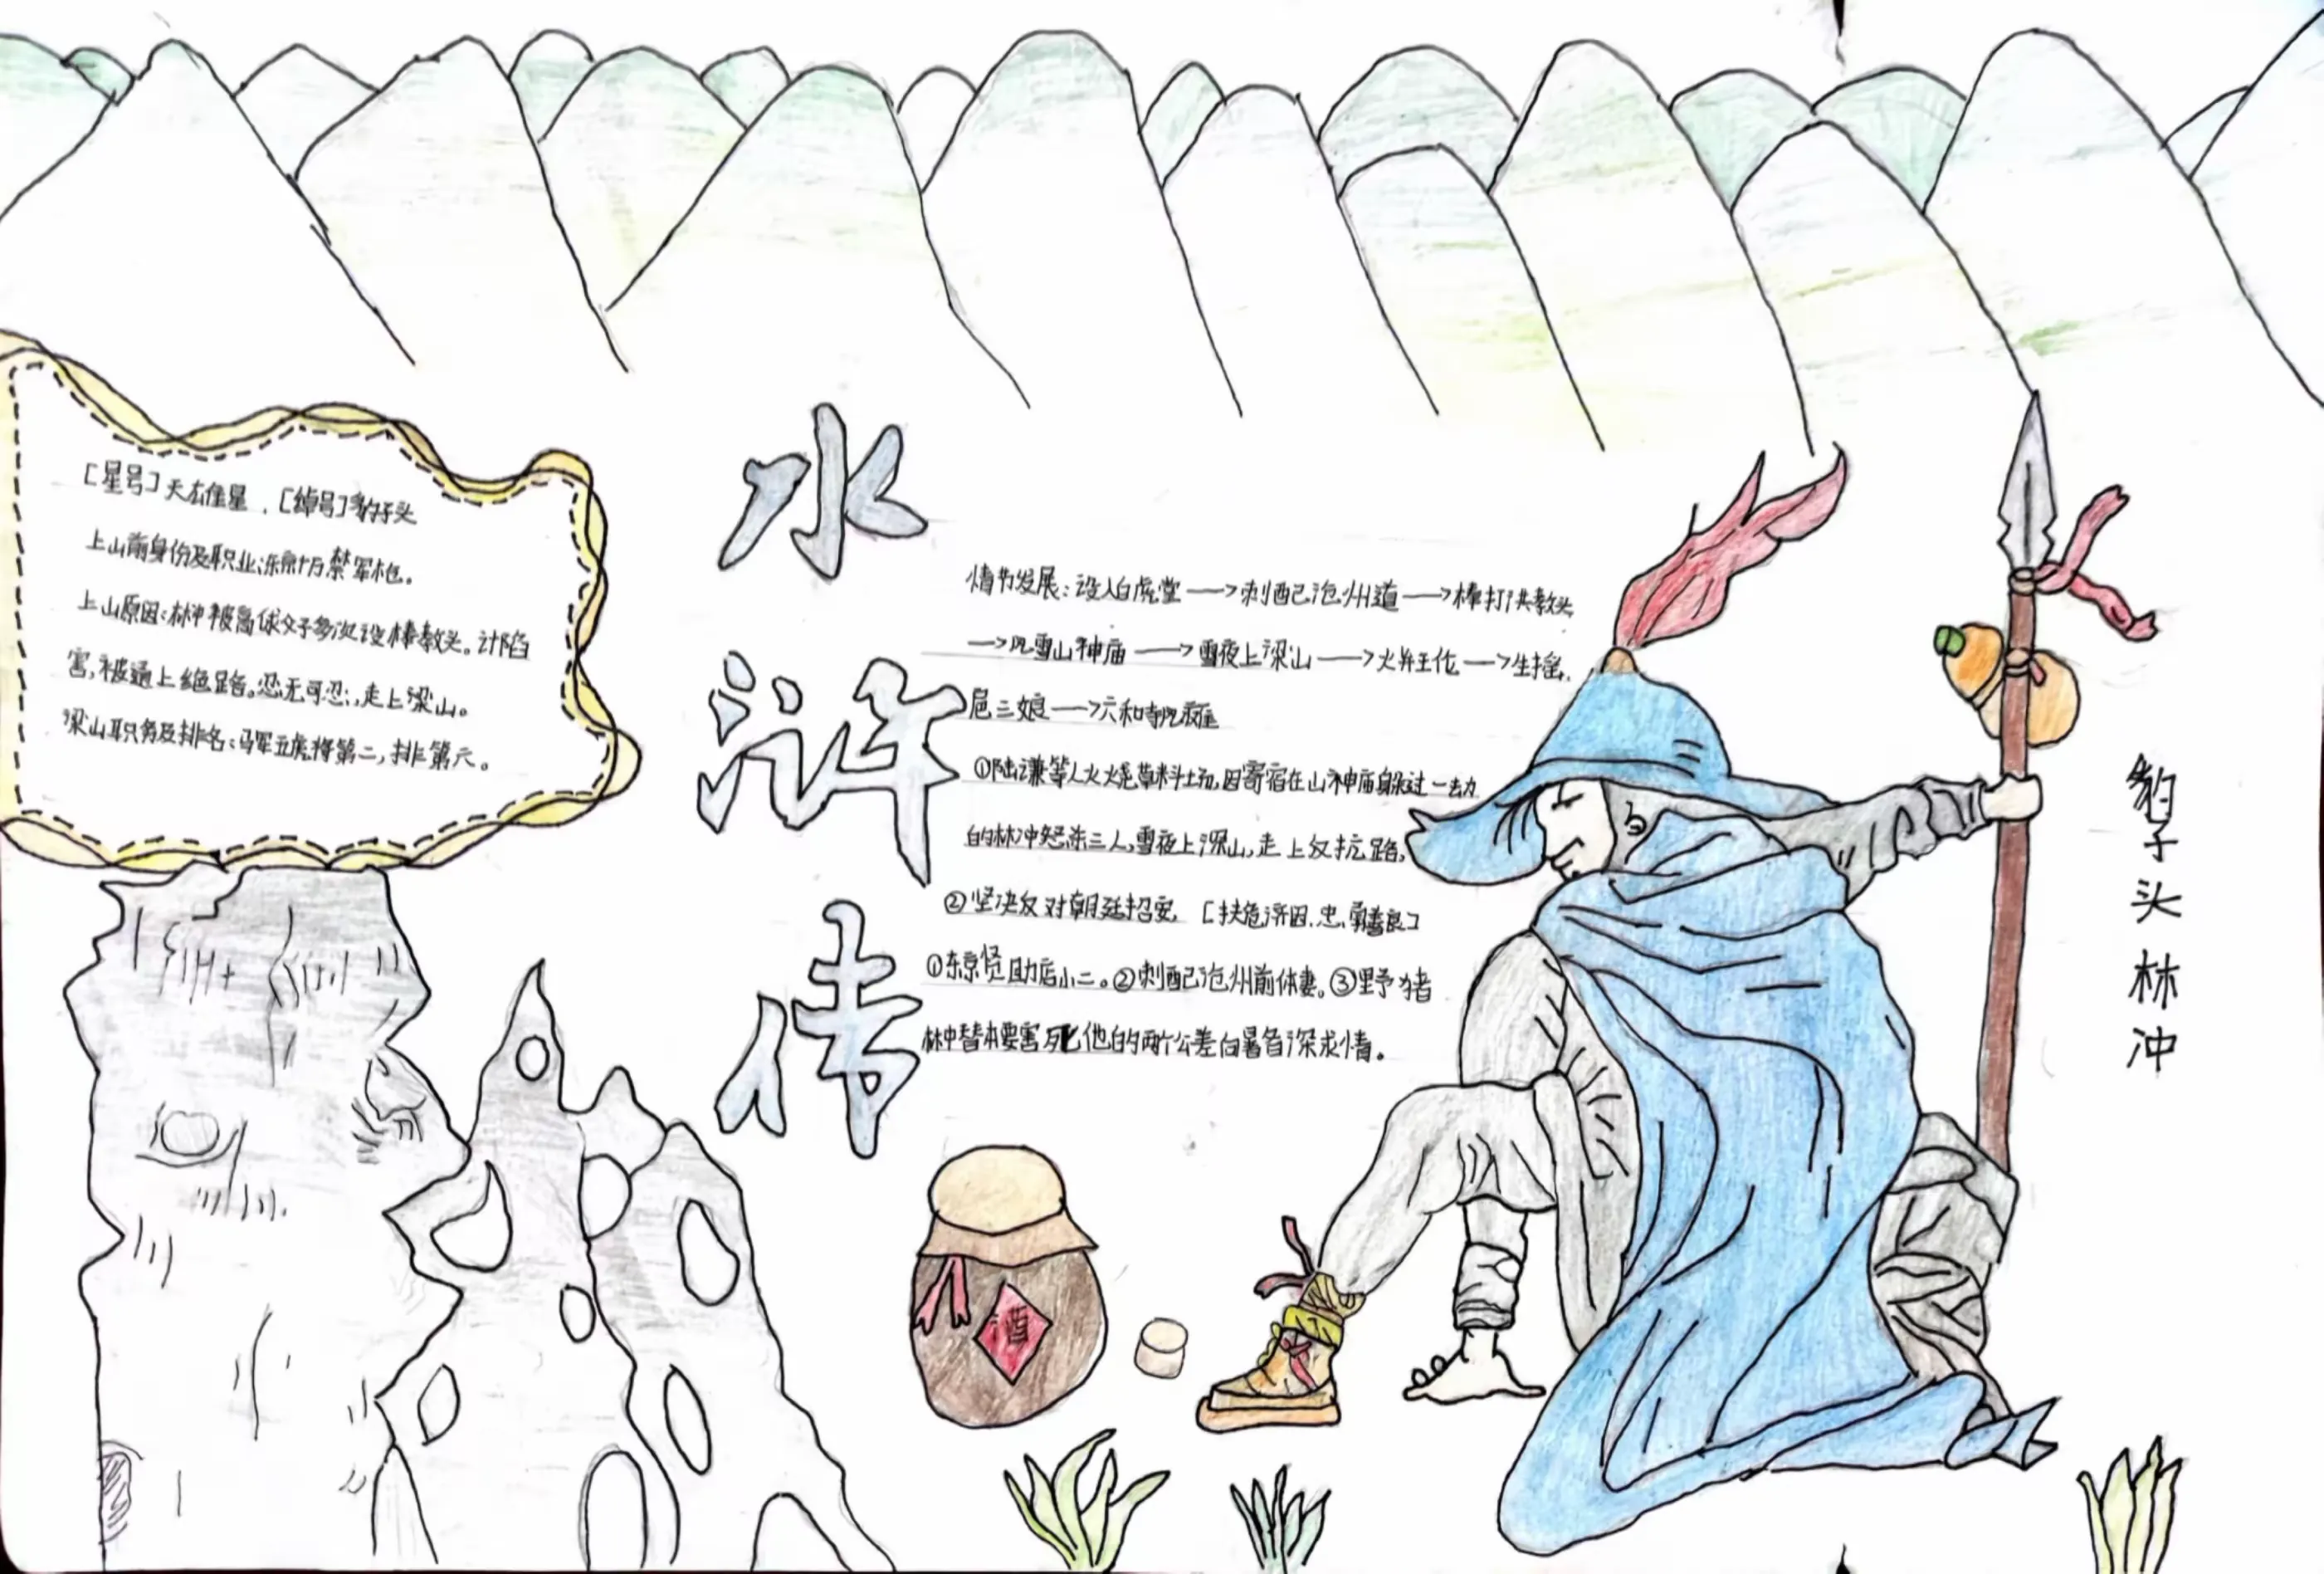 [星号]天雄星,[绰号]豹子头
上山前身份及职业:东京八十万禁军
上山原因:林冲被高俅父子多次设棒教头。计陷
害,被逼上绝路。忍无可忍,走上梁山。
梁山职务及排名:马军五虎将第二,排第六。
水浒传
情节发展:误入白虎堂→刺配沧州道→棒打洪教头
→风雪山神庙→雪夜上梁山→火并王伦→生擒
扈三娘→六和寺
①陆谦等人火烧草料场,因寄宿在山神庙躲过一劫
的林冲怒杀三人,雪夜上梁山,走上反抗路,
②坚决反对朝廷招安。[扶危济困、忠、勇善良]
①东京资助店小二。②刺配沧州前休妻。③野猪
林冲替本要害死他的两个公差向鲁智深求情。
酒
豹子头林冲